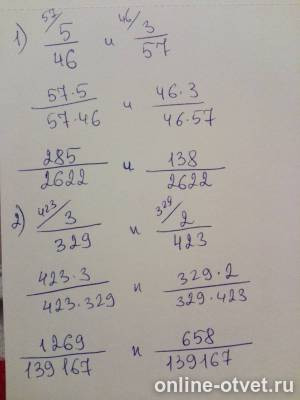 1) 57/ 5/46 и 46/ 3/57
57·5/57·46 и 46·3/46·57
285/2622 и 138/2622
2) 423/ 3/329 и 329/ 2/423
423·3/423·329 и 329·2/329·423
1269/139167 и 658/139167
online-otvet.ru